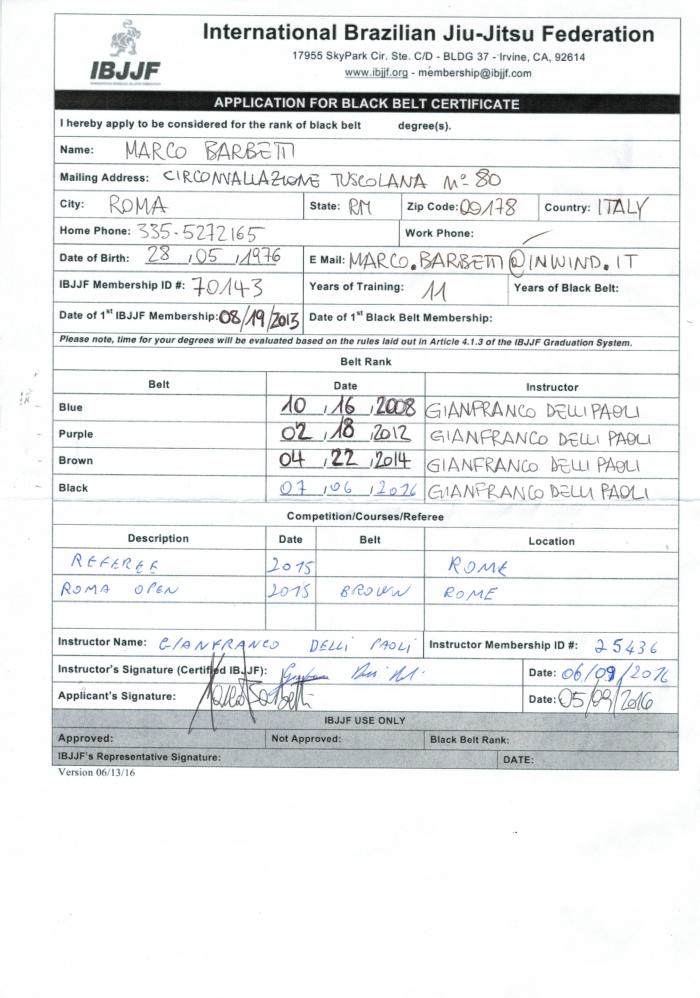 International Brazilian Jiu-Jitsu Federation
17955 SkyPark Cir. Ste. C/D - BLDG 37 - Irvine, CA, 92614
www.ibjjf.org - membership@ibjjf.com
IBJJF
APPLICATION FOR BLACK BELT CERTIFICATE
I hereby apply to be considered for the rank of black belt degree(s).
Name: MARCO BARBETTI
Mailing Address: CIRCONVALLAZIONE TUSCOLANA Nº 80
City: ROMA State: RM Zip Code: 00178 Country: ITALY
Home Phone: 335-5272165 Work Phone:
Date of Birth: 28 , 05 , 1976 E Mail: MARCO.BARBETTI@INWIND.IT
IBJJF Membership ID #: 70143 Years of Training: 11 Years of Black Belt:
Date of 1st IBJJF Membership: 08/19/2013 Date of 1st Black Belt Membership:
Please note, time for your degrees will be evaluated based on the rules laid out in Article 4.1.3 of the IBJJF Graduation System.
Belt Rank
Belt Date Instructor
Blue 10 , 16 , 2008 GIANFRANCO DELLI PAOLI
Purple 02 , 18 , 2012 GIANFRANCO DELLI PAOLI
Brown 04 , 22 , 2014 GIANFRANCO DELLI PAOLI
Black 07 , 06 , 2016 GIANFRANCO DELLI PAOLI
Competition/Courses/Referee
Description Date Belt Location
REFEREE 2015 ROME
ROMA OPEN 2015 BROWN ROME
Instructor Name: GIANFRANCO DELLI PAOLI Instructor Membership ID #: 25436
Instructor's Signature (Certified IBJJF): Date: 06/09/2016
Applicant's Signature: Marco Barbetti Date: 05/09/2016
IBJJF USE ONLY
Approved: Not Approved: Black Belt Rank:
IBJJF's Representative Signature: DATE:
Version 06/13/16